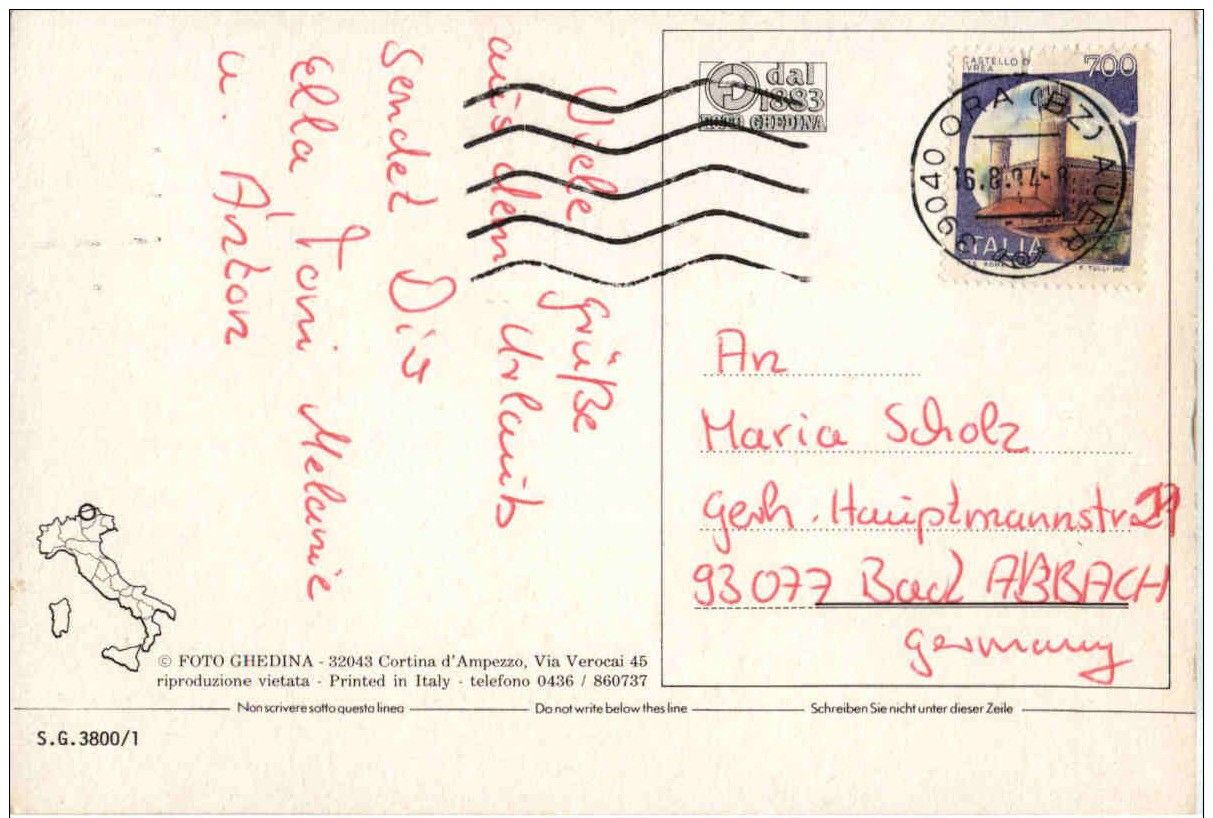 Viele Grüße
aus dem Urlaub
sendet Dir
Ella Toni Melanie
u. Anton
dal
1883
FOTO GHEDINA
CASTELLO D'
IVREA
700
ITALIA
39040 ORA (BZ) AUER
16.8.94-8
An
Maria Scholz
Gerh. Hauptmannstr.
93077 Bad ABBACH
Germany
© FOTO GHEDINA - 32043 Cortina d'Ampezzo, Via Verocai 45
riproduzione vietata - Printed in Italy - telefono 0436 / 860737
Non scrivere sotto questa linea
Do not write below thes line
Schreiben Sie nicht unter dieser Zeile
S.G.3800/1